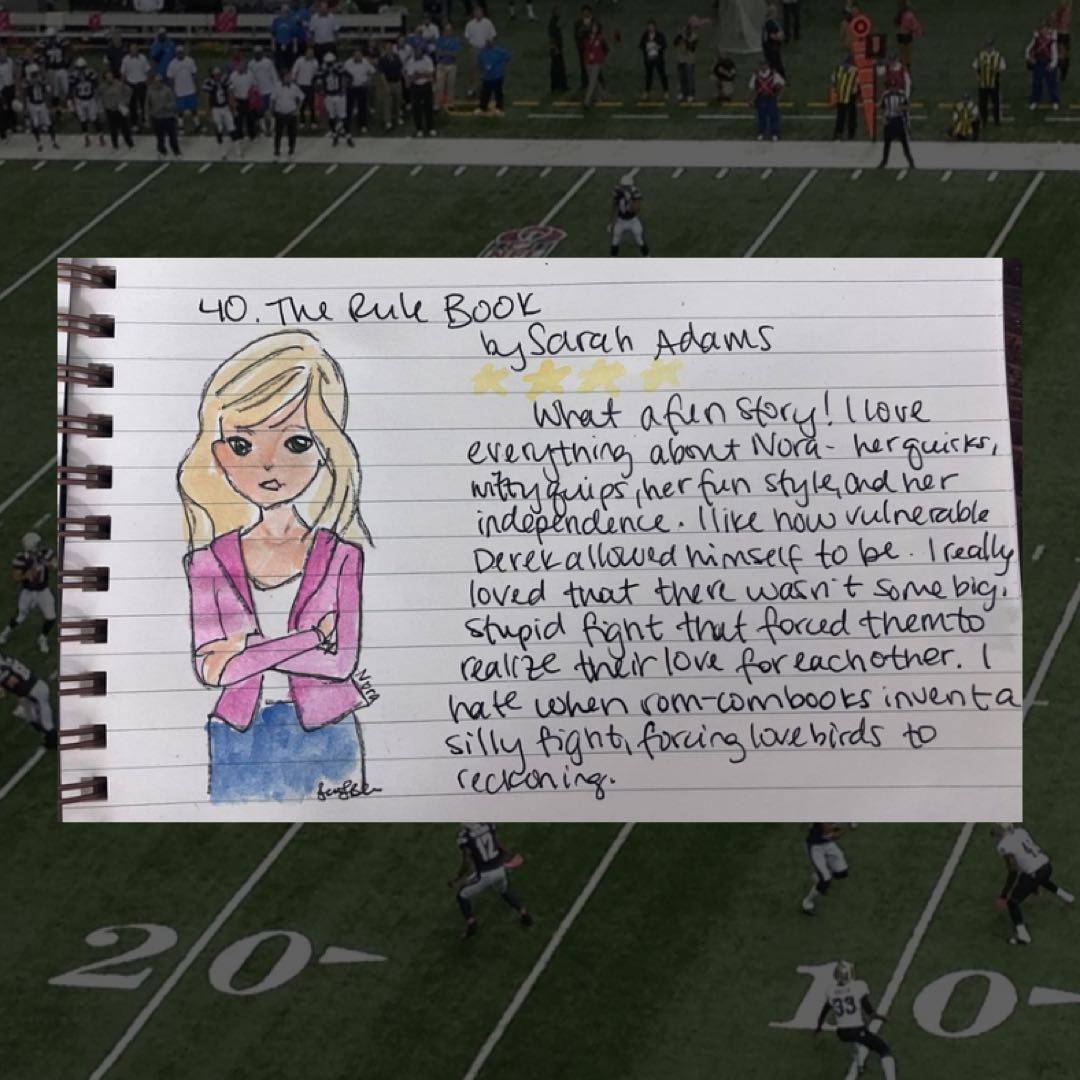 40. The Rule Book
by Sarah Adams
What a fun story! I love
everything about Nora - her quirks,
witty quips, her fun style, and her
independence. I like how vulnerable
Derek allowed himself to be. I really
loved that there wasn't some big,
stupid fight that forced them to
realize their love for each other. I
hate when rom-com books invent a
silly fight, forcing lovebirds to
reckoning.
Nora
12
33
20
10